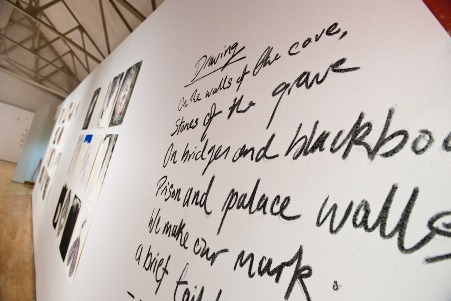 Drawing
On the walls of the cave,
Stones of the grave
On bridges and blackboa
Prison and palace walls
We make our mark
a brief